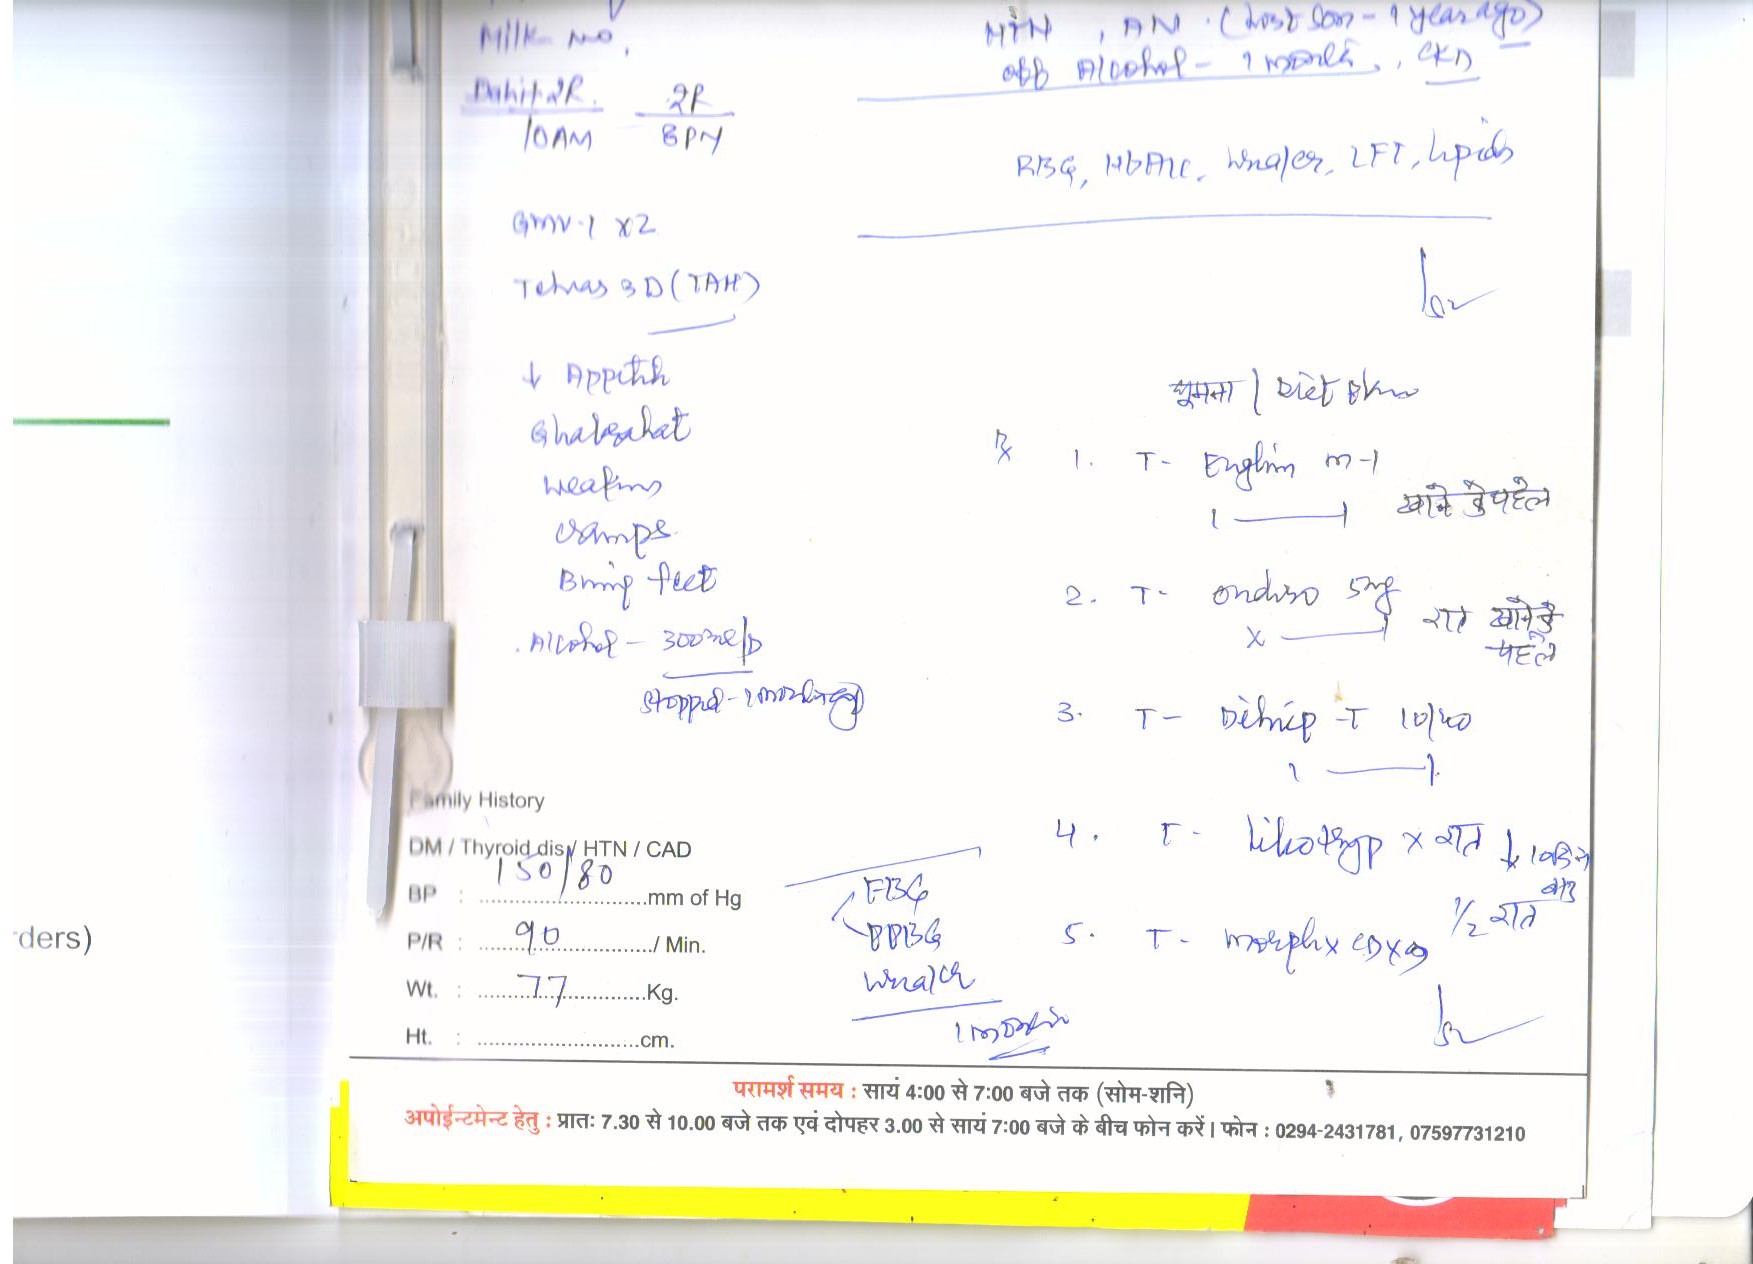 Milk No,
Dahi + 2R. 2R
10AM 8PM
GMV-1 x2
3D (TAH)
↓ Appetite
Ghabrahat
Weakness
Cramps
Burning feet
Alcohol -
Stopped - 1 month ago
Family History
DM / Thyroid dis / HTN / CAD
BP : 150/80 mm of Hg
P/R : 90 / Min.
Wt. : 77 Kg.
Ht. : cm.
FBG
PPBG
Urea/Cr
1 month
HTN, AN. (Lost Son - 1 year ago)
off Alcohol - 1 month, CKD
RBG, HbA1c, Urea/Cr, LFT, Lipids
घूमना / Diet
Rx
1. T- M-1
1 — 1 खाने के पहले
2. T- 5mg
x — 1 रात खाने के पहले
3. T- T 10/40
1 — 1
4. T- x रात ↓ 10 दिन बाद
1/2 रात
5. T-
ders)
परामर्श समय : सायं 4:00 से 7:00 बजे तक (सोम-शनि)
अपोईन्टमेन्ट हेतु : प्रातः 7.30 से 10.00 बजे तक एवं दोपहर 3.00 से सायं 7:00 बजे के बीच फोन करें। फोन : 0294-2431781, 07597731210